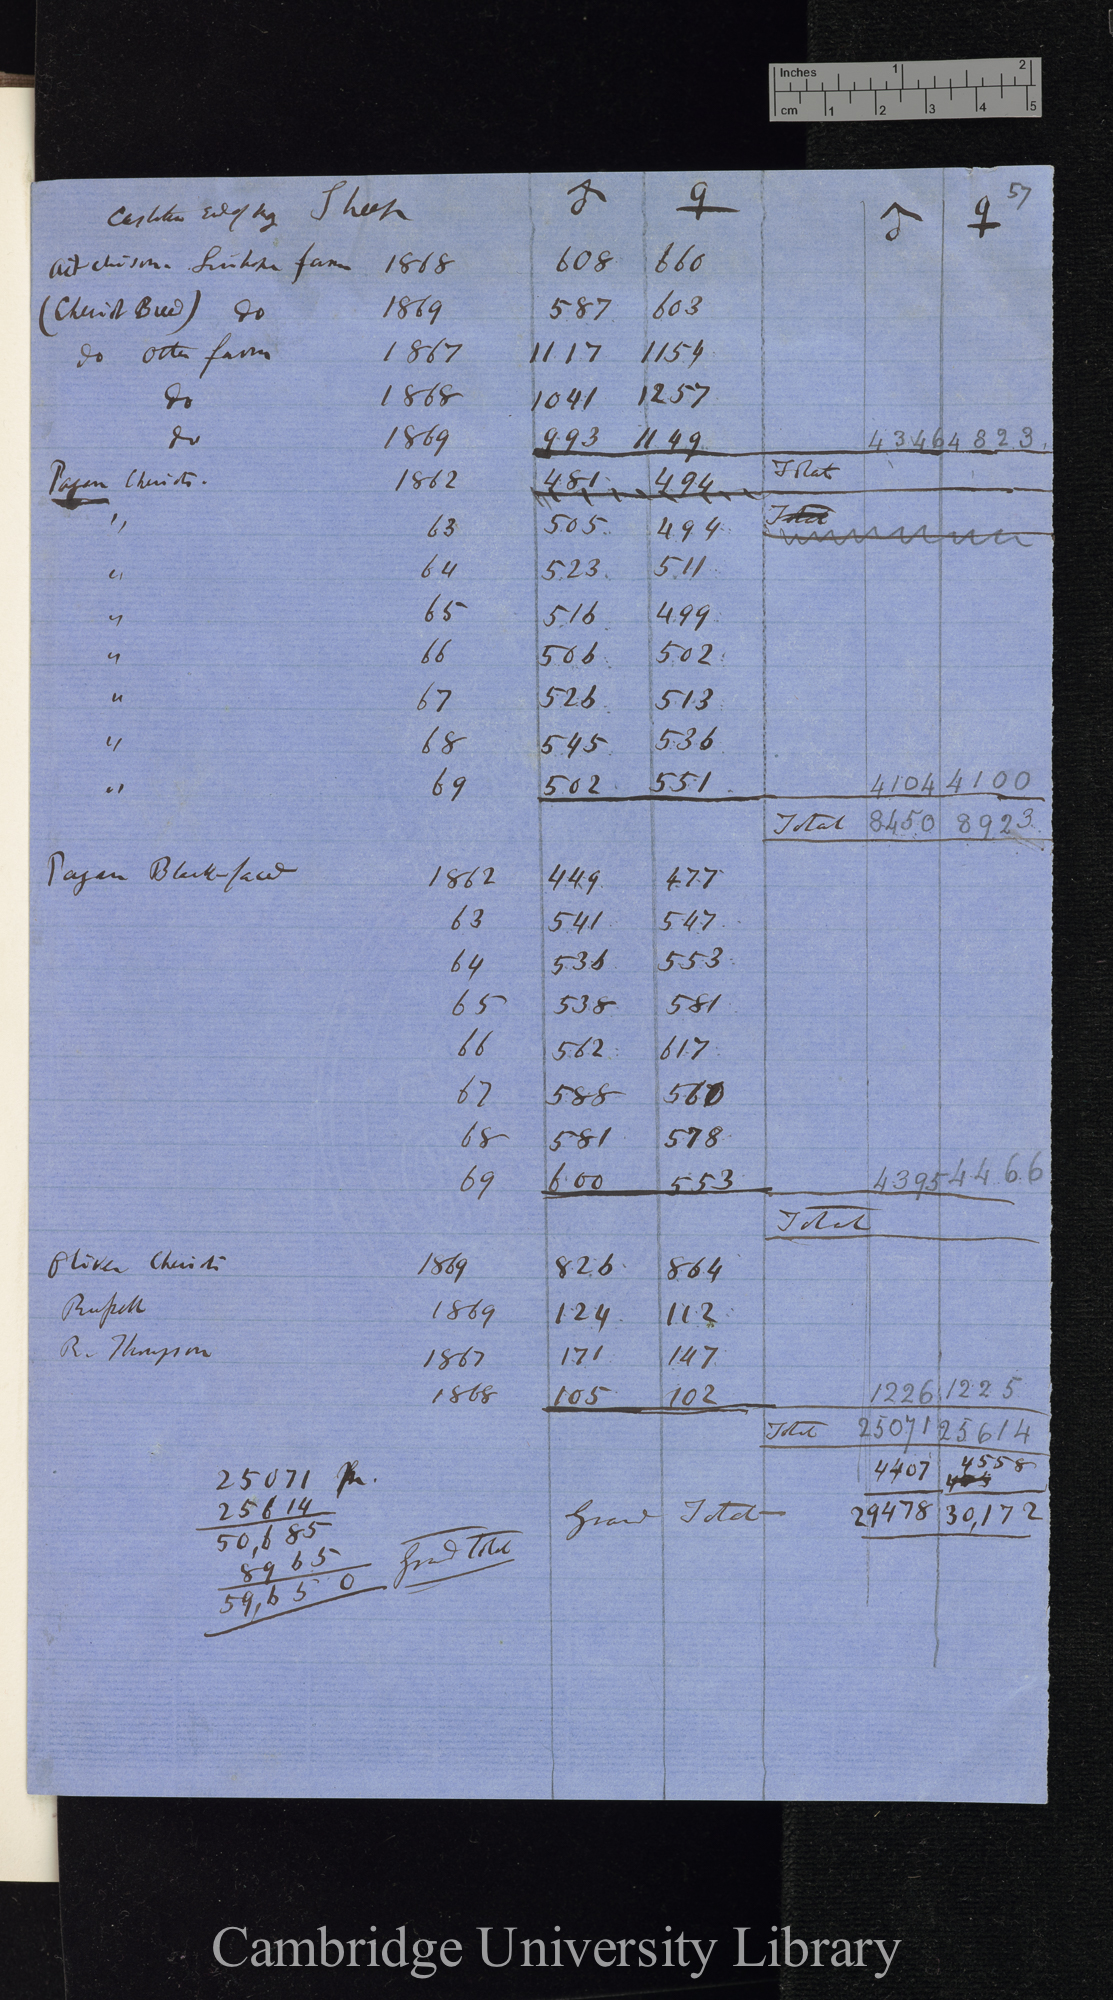 Inches 1 2
cm 1 2 3 4 5
57
Castration Sheep ♂ ♀ ♂ ♀
Aitchison farm 1868 608 660
(Cheviot Breed) do 1869 587 603
do other farm 1867 1117 1154
do 1868 1041 1257
do 1869 993 1149 4346 4823
Total
Pagan Cheviots. 1862 481 494
Total
" 63 505 494
" 64 523 511
" 65 516 499
" 66 506 502
" 67 526 513
" 68 545 536
" 69 502 551 4104 4100
Total 8450 8923
Pagan Black-faced 1862 449 477
63 541 547
64 536 553
65 538 581
66 562 617
67 588 560
68 581 578
69 600 553 4395 4466
Total
Oliver Cheviots 1869 826 864
Russell 1869 124 112
R. Thompson 1867 171 147
1868 105 102 1226 1225
Total 25071 25614
4407 4558
Grand Total 29478 30,172
25071
25614
50,685
8965
59,650 Grand Total
Cambridge University Library